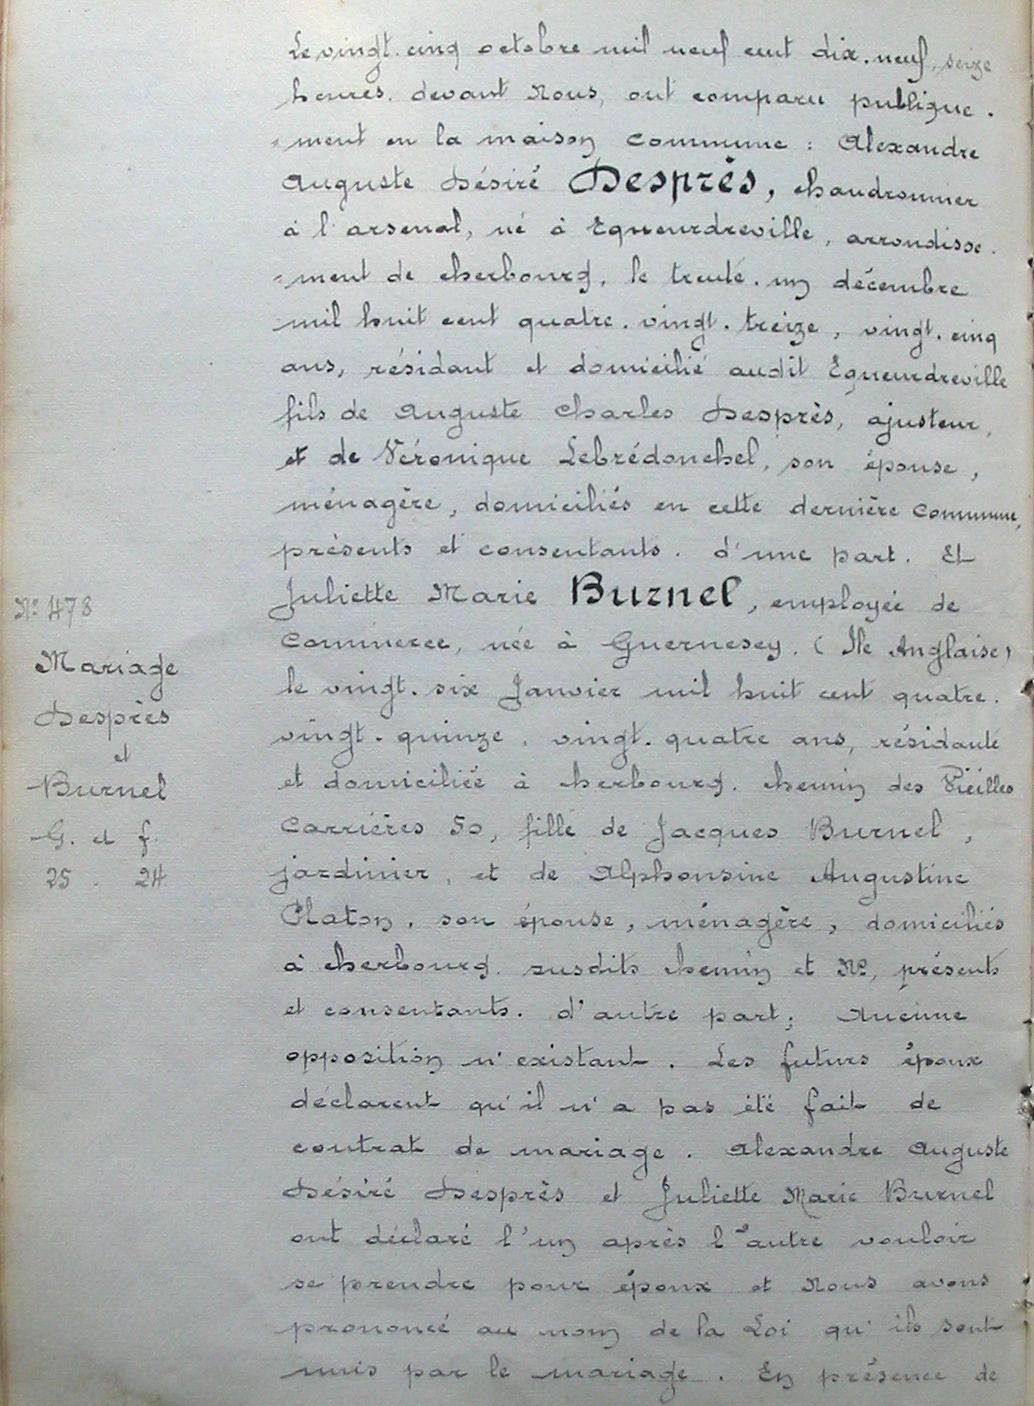 Le vingt-cinq octobre mil neuf cent dix-neuf, seize
heures. devant Nous, ont comparu publique-
-ment en la maison commune : Alexandre
Auguste Désiré Desprès, chaudronnier
à l'arsenal, né à Equeurdreville, arrondisse-
-ment de Cherbourg, le trente-un décembre
mil huit cent quatre-vingt-treize, vingt-cinq
ans, résidant et domicilié audit Equeurdreville
fils de Auguste Charles Desprès, ajusteur,
et de Véronique Lebrédonchel, son épouse,
ménagère, domiciliés en cette dernière commune,
présents et consentants. d'une part. Et
Juliette Marie Burnel, employée de
commerce, née à Guernesey. (Ile Anglaise)
le vingt-six Janvier mil huit cent quatre-
vingt-quinze, vingt-quatre ans, résidante
et domiciliée à Cherbourg. chemin des Vieilles
Carrières 50, fille de Jacques Burnel,
jardinier, et de Alphonsine Augustine
Platon, son épouse, ménagère, domiciliés
à Cherbourg. susdits chemin et No, présents
et consentants. d'autre part; Aucune
opposition n'existant. Les futurs époux
déclarent qu'il n'a pas été fait de
contrat de mariage. Alexandre Auguste
Désiré Desprès et Juliette Marie Burnel
ont déclaré l'un après l'autre vouloir
se prendre pour époux et Nous avons
prononcé au nom de la Loi qu'ils sont
unis par le mariage. En présence de
No 478
Mariage
Desprès
et
Burnel
G. et f.
25 - 24